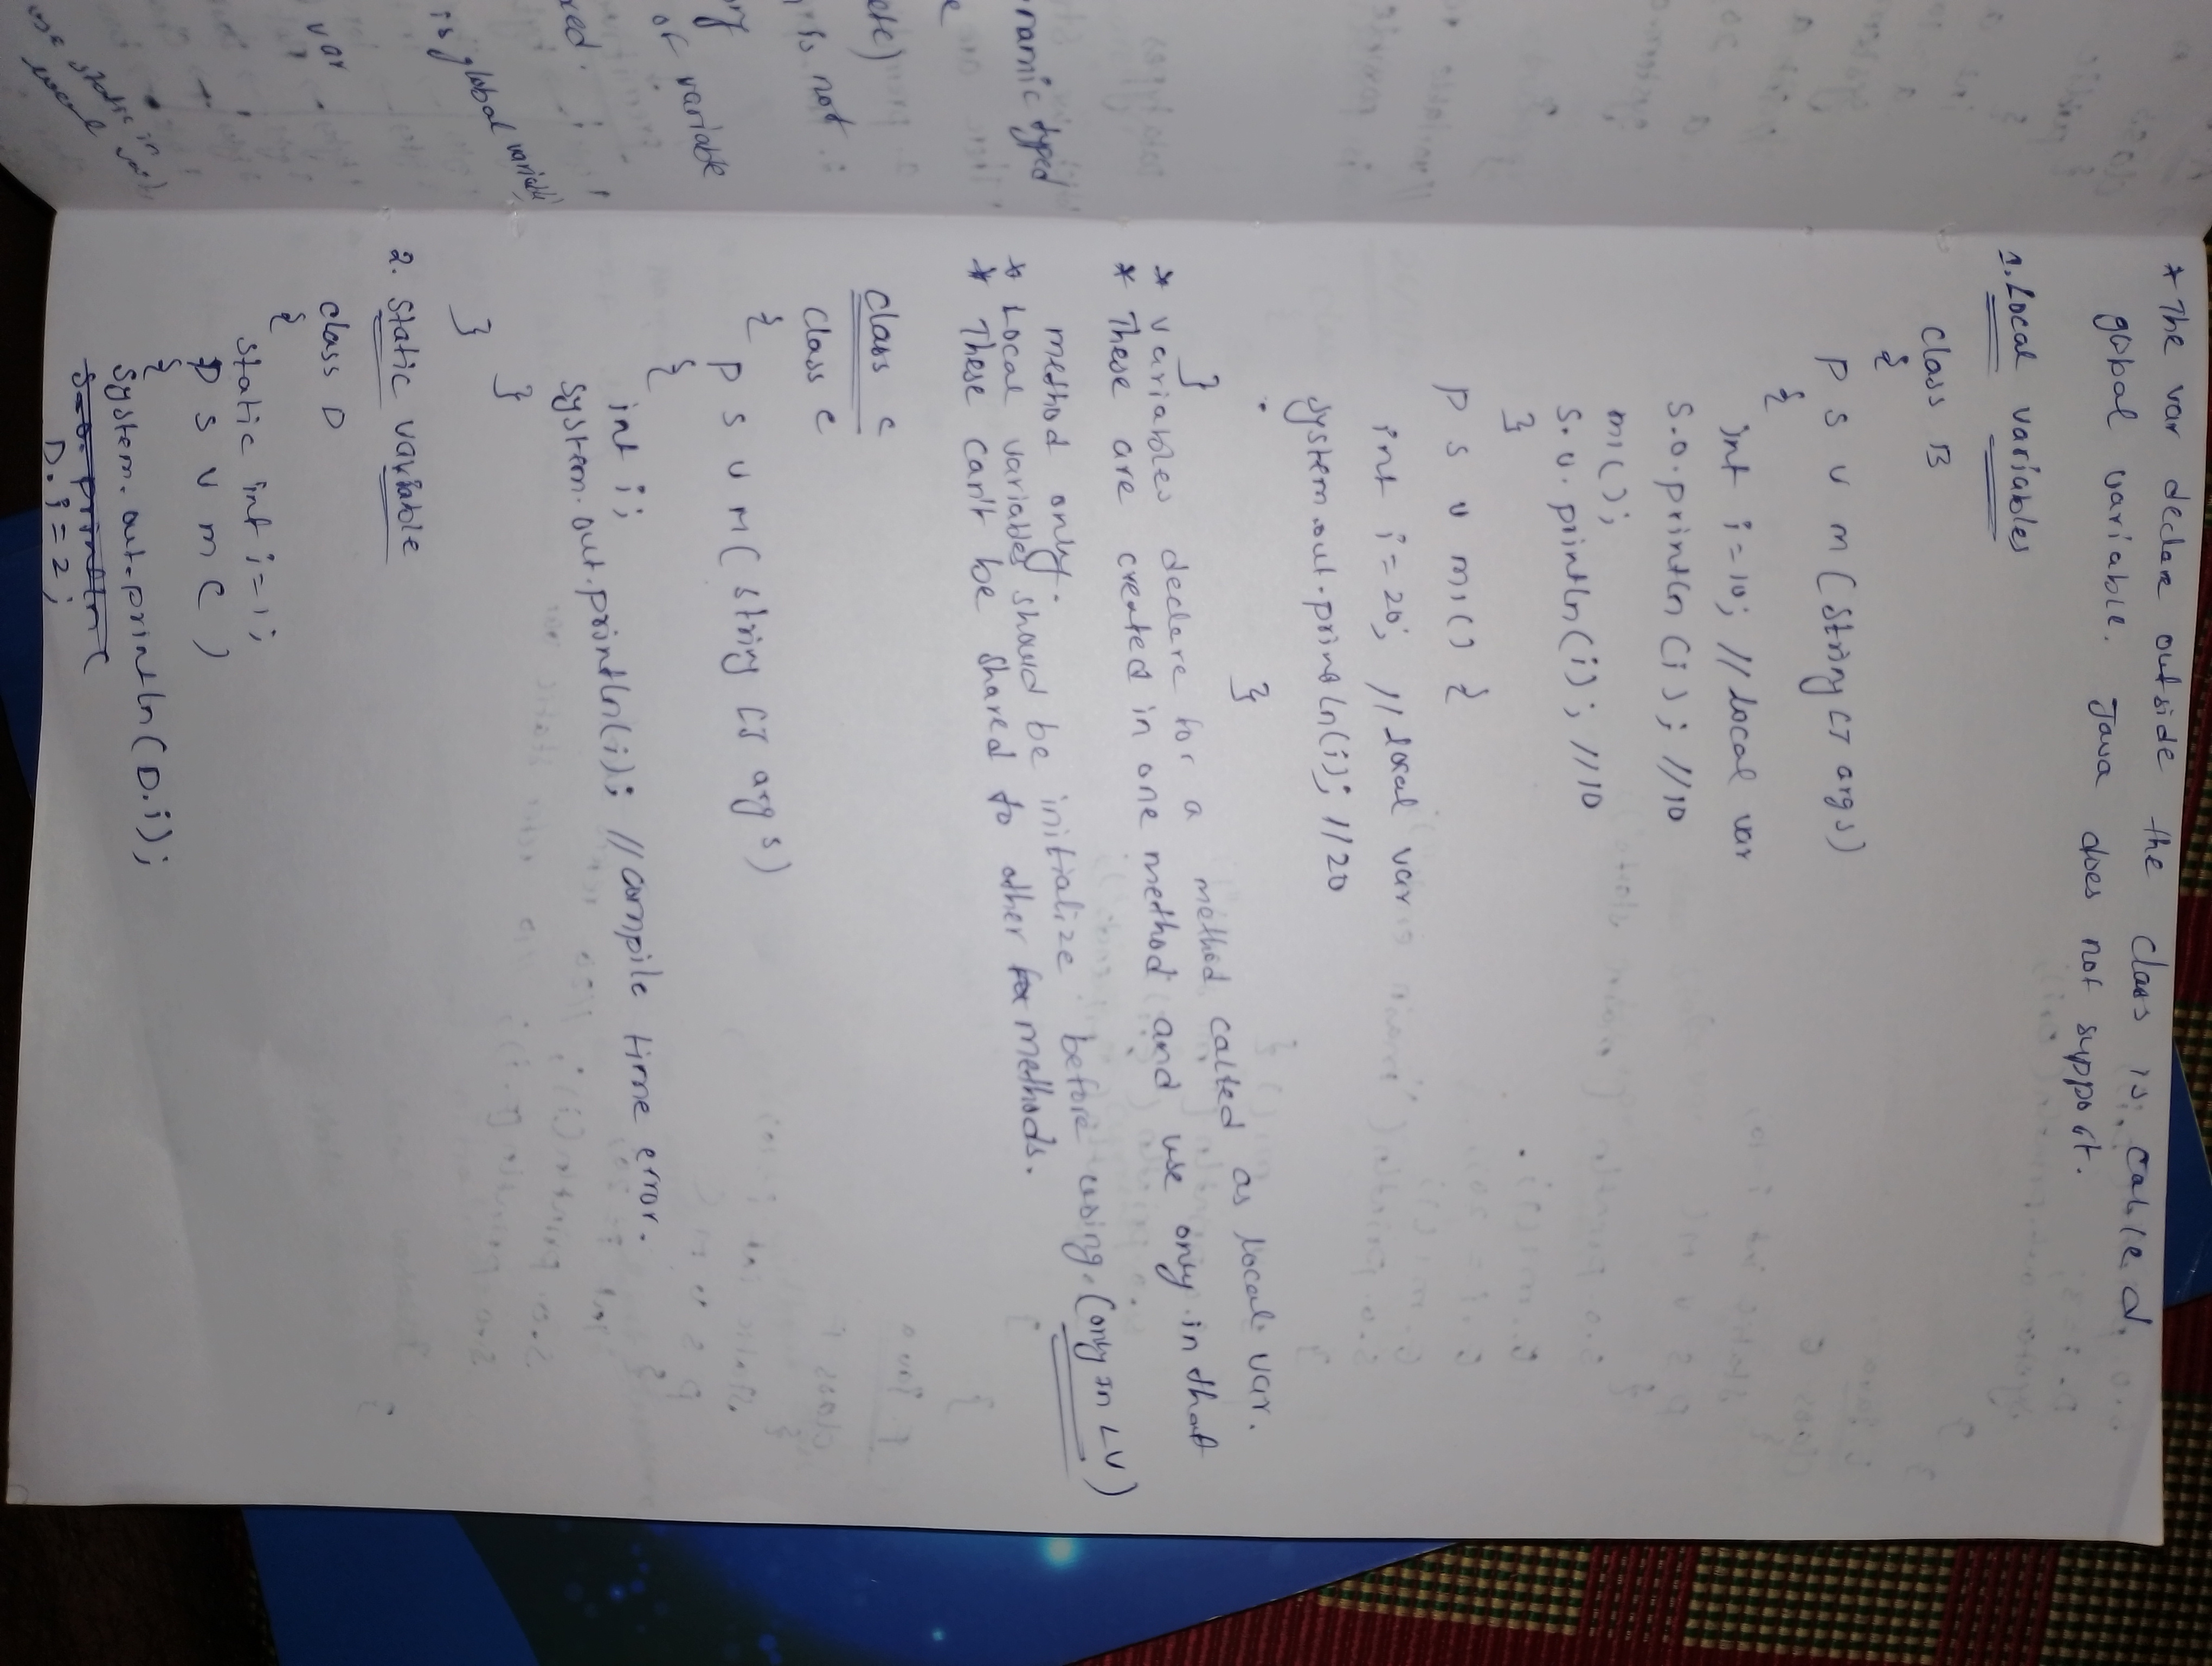 * The var declare outside the class is called
global variable. Java does not support.
1. Local variables
class B
{
p s v m (String [] args)
{
int i = 10; // local var
S.o.println (i); //10
m1();
S.o.println(i); //10
}
p s v m1() {
int i = 20; // local var
System.out.println(i); //20
}
}
* variables declare for a method called as local var.
* These are created in one method and use only in that
method only.
* Local variables should be initialize before using. (only in LV)
* These can't be shared to other methods.
class c
class c
{
p s v m (String [] args)
{
int i;
System.out.println(i); // compile time error.
}
}
2. static variable
class D
{
static int i = 1;
p s v m ( )
{
System.out.println(D.i);
S.o.println(
D.i = 2;
namic typed
ete)
is not
ory
of variable
red.
is global variable
var
static in
local